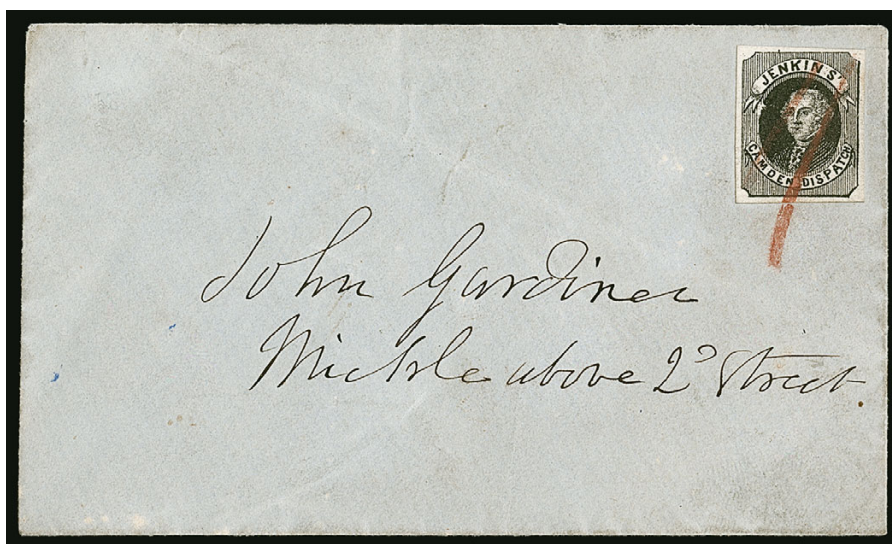 JENKINS'
CAMDEN DISPATCH
John Gardiner
Mickle above 2ᵈ Street.